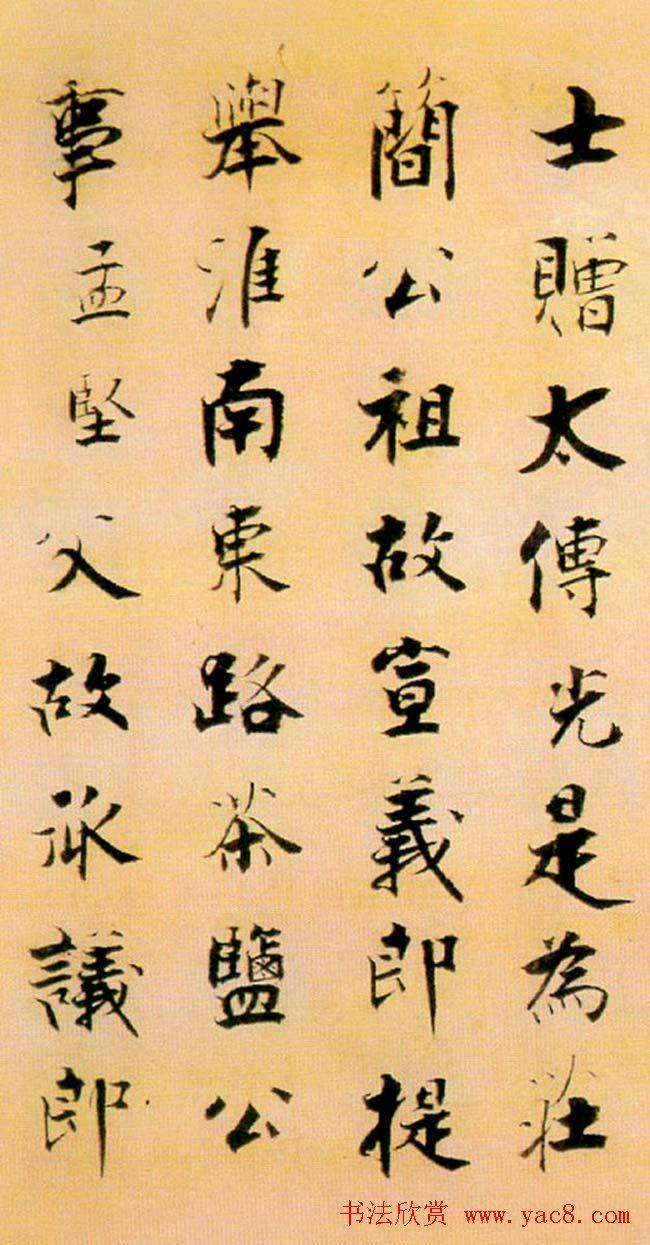 士贈太傅光是為莊
簡公祖故宣義郎提
舉淮南東路茶鹽公
事孟堅父故承議郎
书法欣赏 www.yac8.com